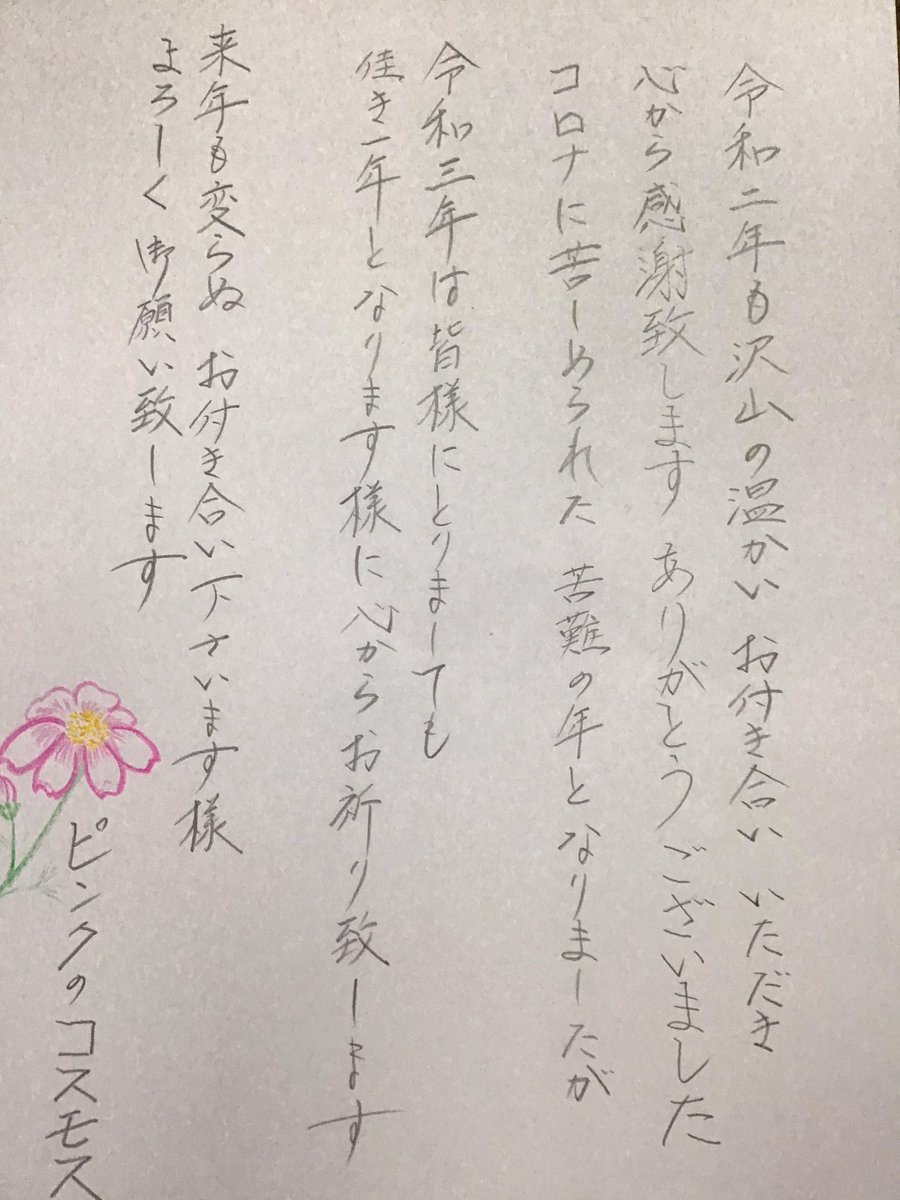 令和二年も沢山の温かい お付き合い いただき
心から感謝致します ありがとう ございました
コロナに苦しめられた 苦難の年となりましたが
令和三年は皆様にとりましても
佳き一年となります様に心からお祈り致します
来年も変らぬ お付き合い下さいます様
よろしく御願い致します
ピンクのコスモス